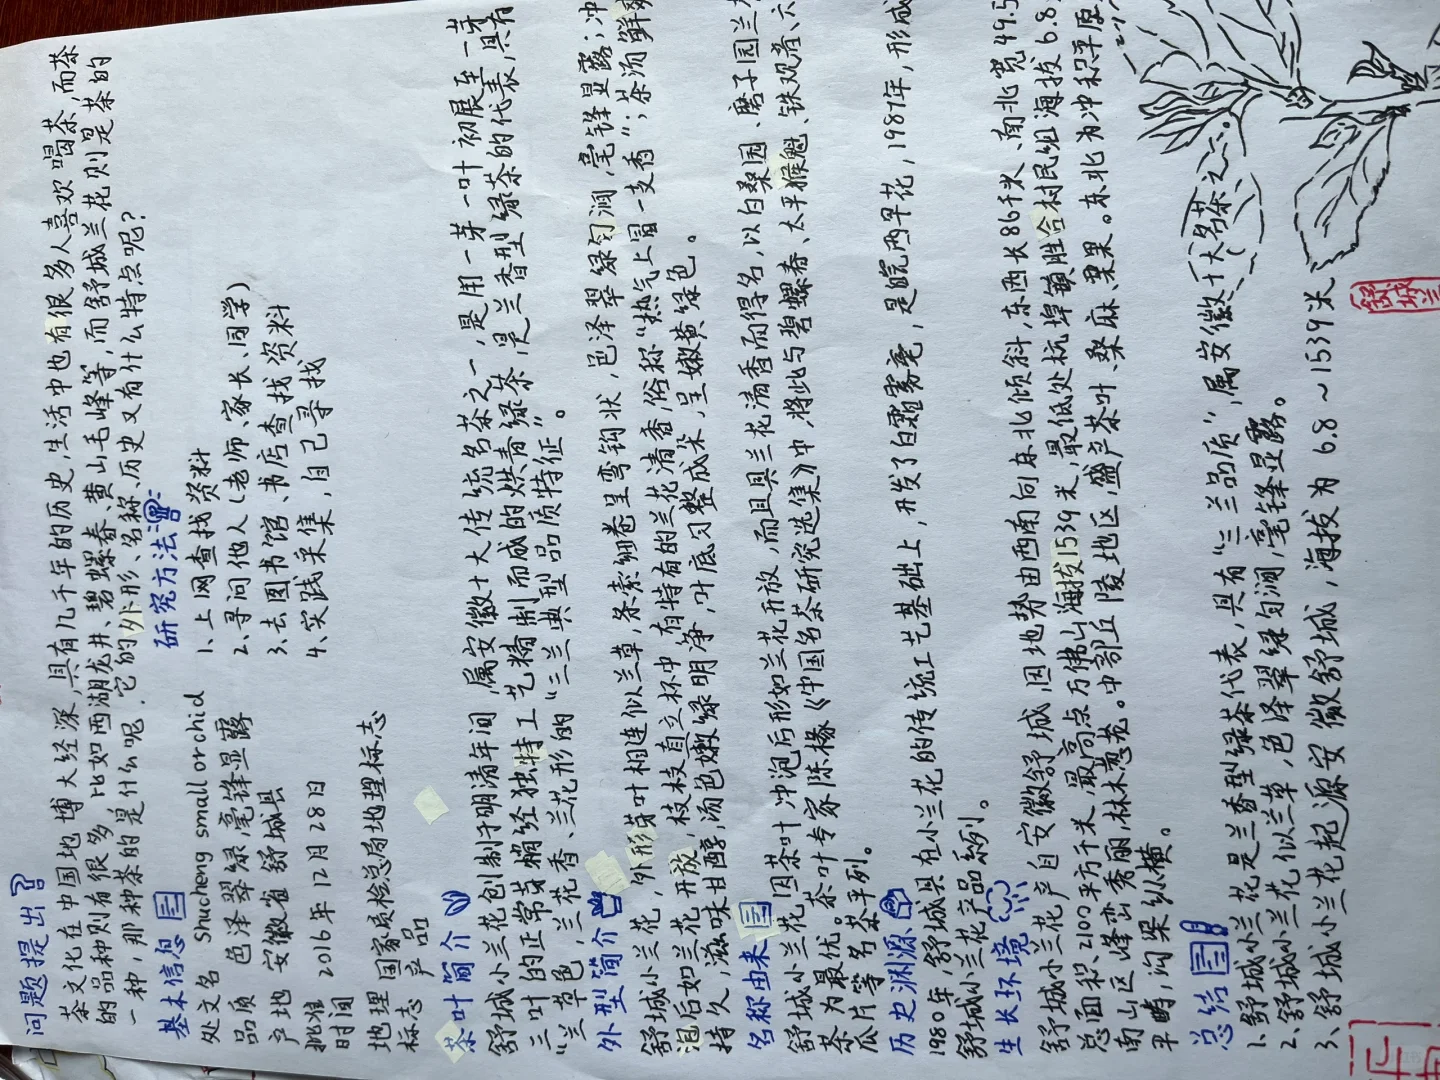 问题提出
茶文化在中国地博大经深,具有几千年的历史,生活中也有很多人喜欢喝茶,而茶
的品种则有很多,比如西湖龙井、碧螺春、黄山毛峰等,而舒城兰花则是茶的
一种,那种茶的是什么呢,它的外形、名称、历史又有什么特点呢?
基本信息
处文名 Shucheng small orchid
品质 色泽翠绿,毫锋显露
产地 安徽省 舒城县
批准时间 2016年12月28日
地理标志 国家质检总局地理标志产品
研究方法
1、上网查找资料
2、寻问他人(老师、家长、同学)
3、去图书馆、书店查找资料
4、实践采集,自己寻找
茶叶简介
舒城小兰花创制于明清年间,属安徽十大传统名茶之一,是用一芽一叶初展至一芽
三叶的正常芽稍经独特工艺精制而成的烘青绿茶,是兰香型绿茶的代表,具有
“兰草色,兰花香、兰花形的“三兰典型品质特征”。
外型简介
舒城小兰花,外形芽叶相连似兰草,条索细卷呈弯钩状,色泽翠绿匀润,毫锋显露;冲
泡后如兰花开放,枝枝直立杯中,有特有的兰花清香,俗称“热气上冒一支香”;茶汤鲜爽
持久,滋味甘醇,汤色嫩绿明净,叶底匀整成朵,呈嫩黄绿色。
名称由来
舒城小兰花因茶叶冲泡后形如兰花开放,而且具兰花清香而得名,以白桑园、磨子园兰花
茶为最优。茶叶专家陈椽《中国名茶研究选集》中,将此与碧螺春、太平猴魁、铁观音、六
瓜片等名茶平列。
历史渊源
1980年,舒城县在小兰花的传统工艺基础上,开发了白霜雾毫,是皖西早花,1987年,形成
舒城小兰花产品系列。
生长环境
舒城小兰花产自安徽舒城,因地势由西南向东北倾斜,东西长86千米、南北宽49.5
总面积、2100平方千米,最高点万佛山海拔1539米,最低处杭埠镇胜合村民组海拔6.8
南山区,峰峦秀丽,林木葱茏。中部丘陵地区,盛产茶叶、桑麻、栗果。东北为冲积平原
平畴,沟渠纵横。
总结
1、舒城小兰花是兰香型绿茶代表,具有“三兰品质”,属安徽十大名茶之一
2、舒城小兰花似兰草,色泽翠绿匀润,毫锋显露。
3、舒城小兰花起源安徽舒城,海拔为6.8~1539米
舒城兰